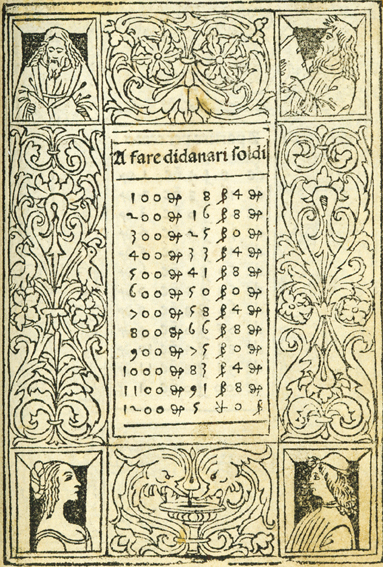 A fare didanari soldi
100 ₰ 8 ß 4 ₰
200 ₰ 16 ß 8 ₰
300 ₰ 25 ß 0 ₰
400 ₰ 33 ß 4 ₰
500 ₰ 41 ß 8 ₰
600 ₰ 50 ß 0 ₰
700 ₰ 58 ß 4 ₰
800 ₰ 66 ß 8 ₰
900 ₰ 75 ß 0 ₰
1000 ₰ 83 ß 4 ₰
1100 ₰ 91 ß 8 ₰
1200 ₰ 5 ₶ 0 ß